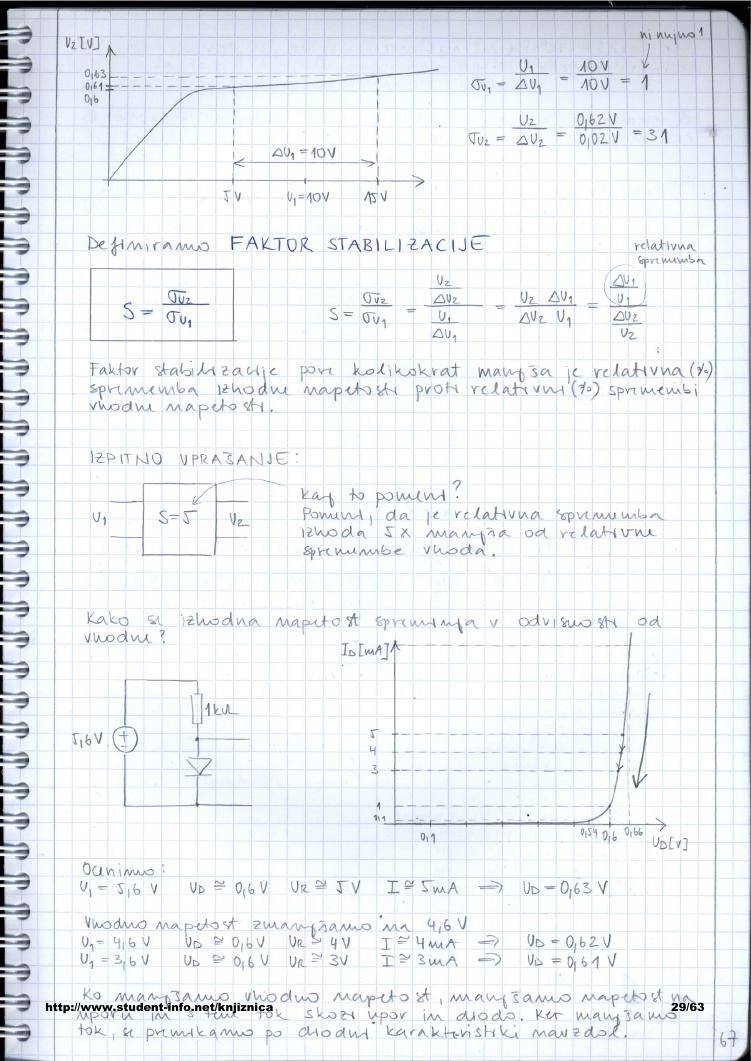 U₂ [V]
0,63
0,61
0,6
ΔU₁ = 10V
5V U₁=10V 15V
ni nujno 1
σU₁ = U₁/ΔU₁ = 10V/10V = 1
σU₂ = U₂/ΔU₂ = 0,62V/0,02V = 31
Definiramo FAKTOR STABILIZACIJE
relativna
sprememba
S = σU₂/σU₁
S = σU₂/σU₁ = (U₂/ΔU₂)/(U₁/ΔU₁) = U₂ ΔU₁/ΔU₂ U₁ = (ΔU₁/U₁)/(ΔU₂/U₂)
Faktor stabilizacije pove kolikokrat manjša je relativna (%)
sprememba izhodne napetosti proti relativni (%) spremembi
vhodne napetosti.
IZPITNO VPRAŠANJE:
U₁ S=5 U₂
Kaj to pomeni?
Pomeni, da je relativna sprememba
izhoda 5x manjša od relativne
spremembe vhoda.
Kako se izhodna napetost spreminja v odvisnosti od
vhodne?
5,6V
1kΩ
I_D [mA]
5
4
3
1
0,1
0,1 0,54 0,6 0,66
U_D [V]
Ocenimo:
U₁ = 5,6 V U_D ≅ 0,6 V U_R ≅ 5V I ≅ 5mA ⇒ U_D = 0,63 V
Vhodno napetost zmanjšamo na 4,6V
U₁ = 4,6V U_D ≅ 0,6V U_R ≅ 4V I ≅ 4mA ⇒ U_D = 0,62V
U₁ = 3,6V U_D ≅ 0,6V U_R ≅ 3V I ≅ 3mA ⇒ U_D = 0,61V
Ko manjšamo vhodno napetost, manjšamo napetost na
http://www.student-info.net/knjiznica 29/63
uporu in s tem tok skozi upor in diodo. Ker manjšamo
tok, se premikamo po diodni karakteristiki navzdol.
67